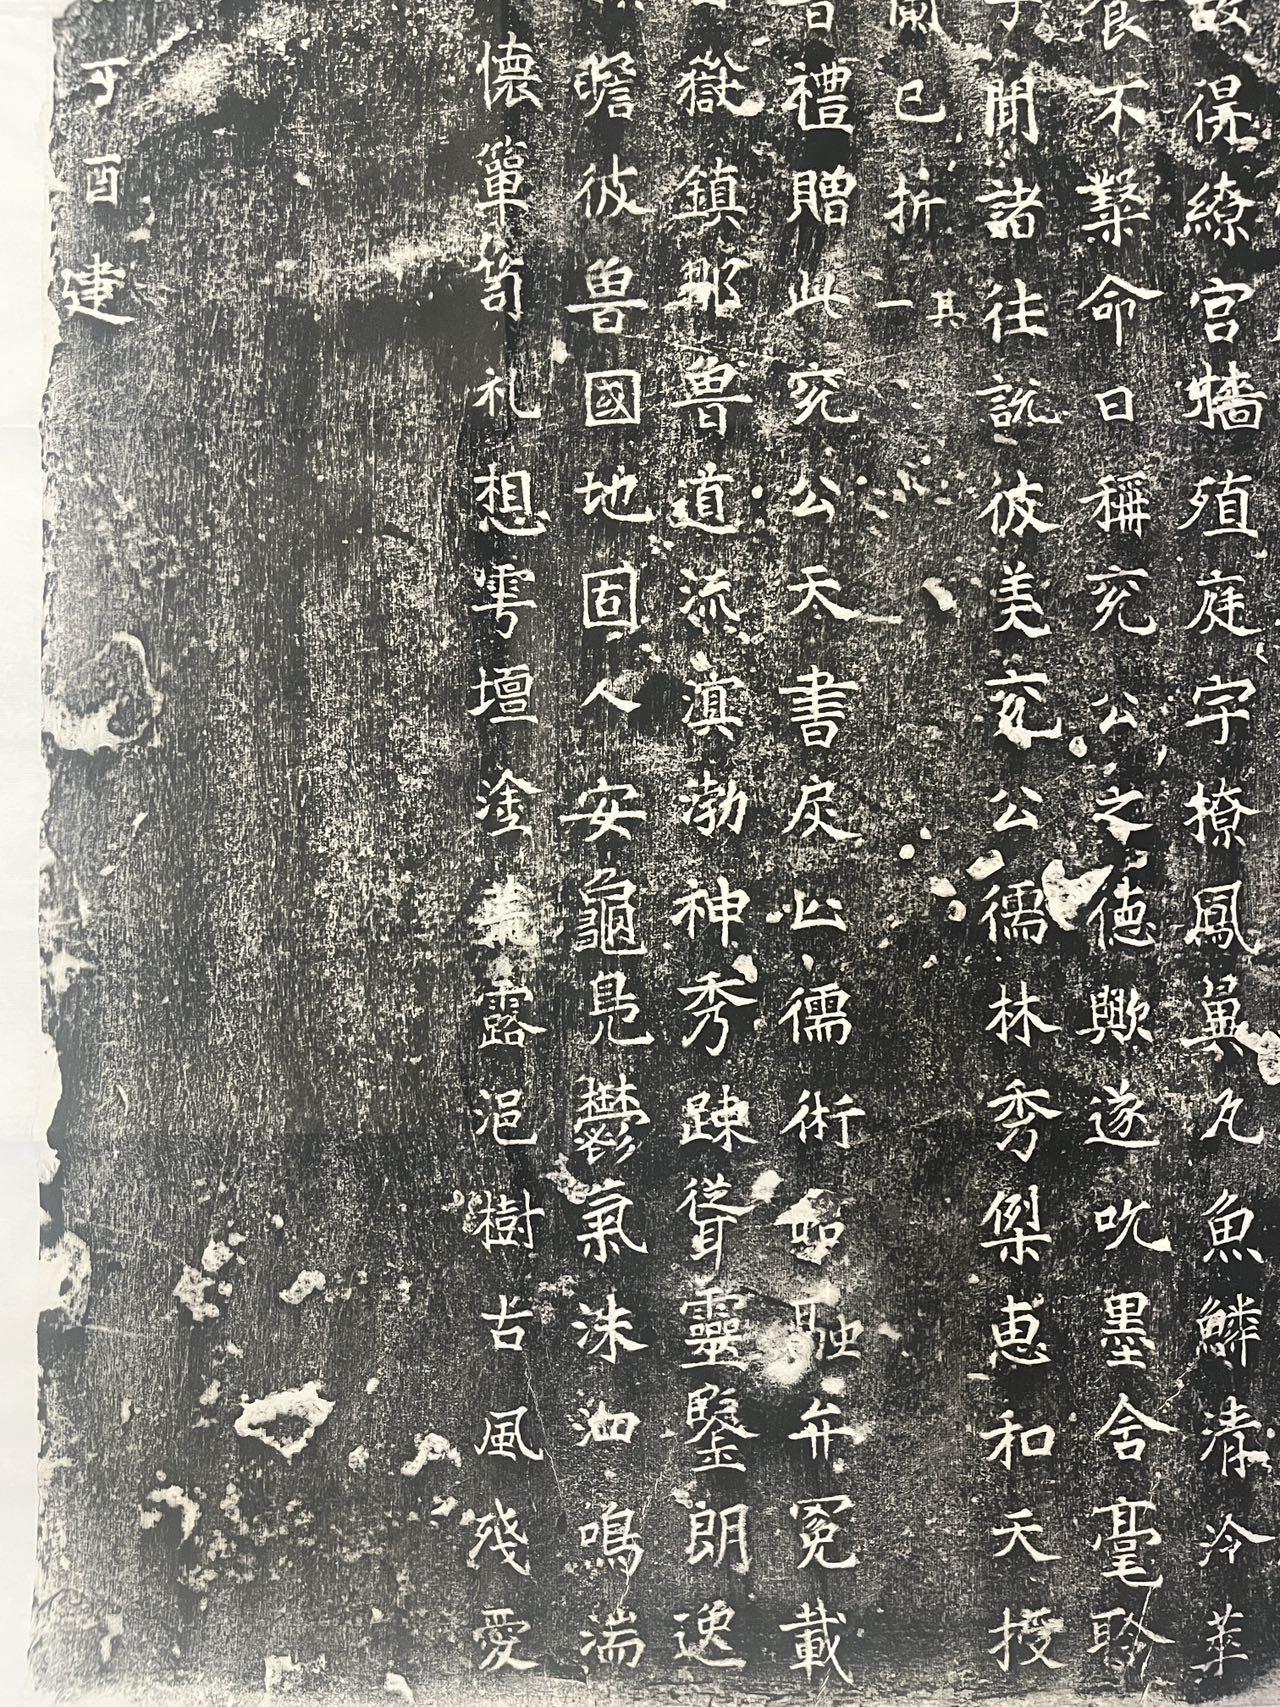 保繚宮牆殖庭宇撩鳳翼瓦魚鱗清泠華
不檠命曰稱兖公之德歟遂吮墨含毫聆
聞諸往說彼美兖公儒林秀傑惠和天授
已折其一
禮贈此兖公天書戾止儒術昭融弁冕載
嶽鎮鄒魯道流溟渤神秀踈聳靈鑒朗逸
瞻彼魯國地固人安龜鳧鬱氣洙泗鳴湍
懷簞笥礼想雩壇塗露浥樹古風殘愛
丁酉建